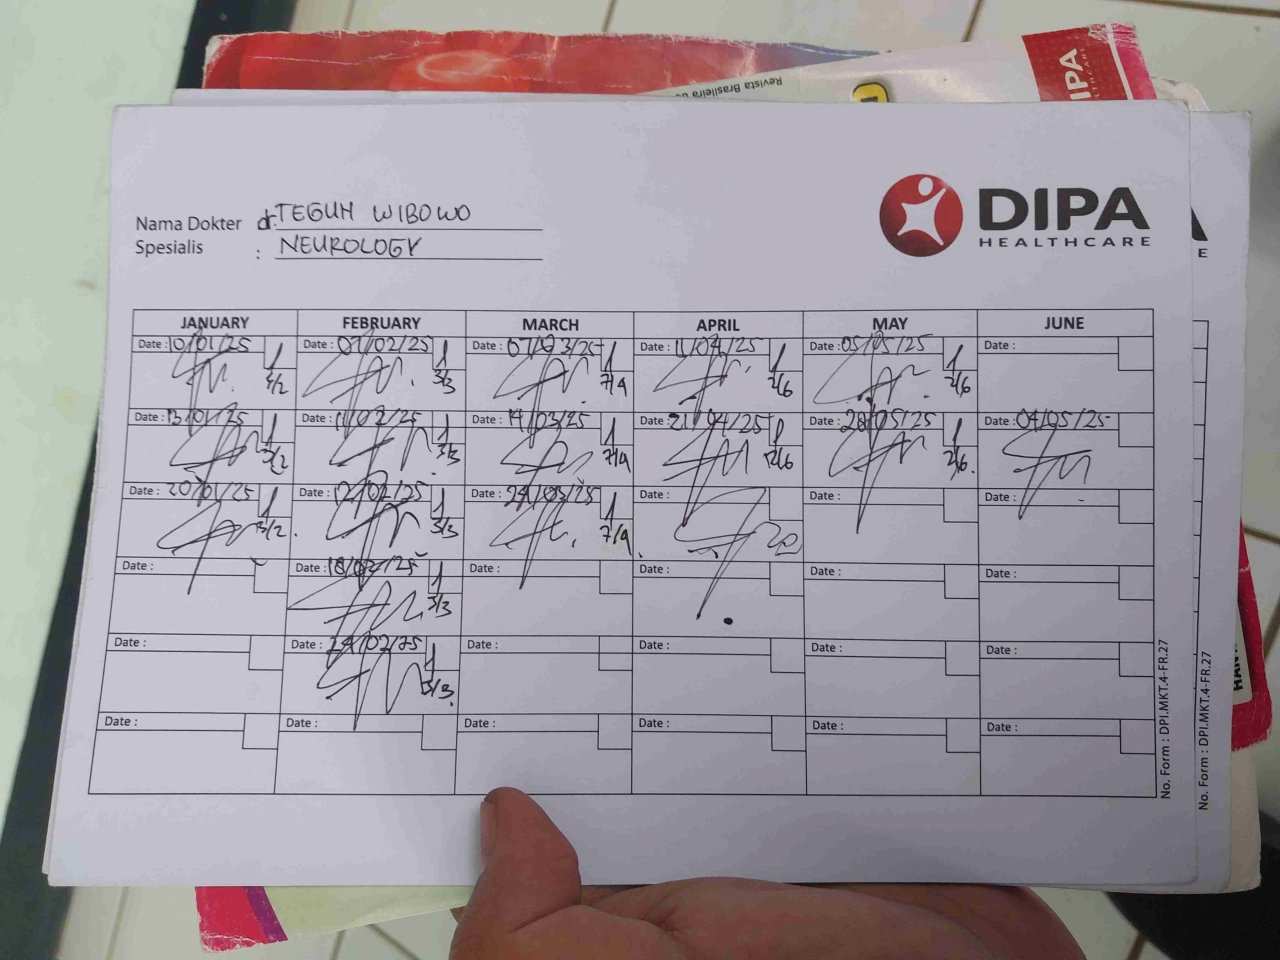 Revista Brasileira
IPA
Nama Dokter dr. TEGUH WIBOWO
Spesialis : NEUROLOGY
DIPA
HEALTHCARE
E
JANUARY FEBRUARY MARCH APRIL MAY JUNE
Date : 10/01/25 Date : 07/02/25 3/3 Date : 07/03/25 7/4 Date : 11/04/25 2/6 Date : 05/05/25 2/6 Date :
Date : 13/01/25 3/2 Date : 11/02/25 3/3 Date : 14/03/25 7/4 Date : 21/04/25 2/6 Date : 28/05/25 2/6. Date : 04/05/25
Date : 20/01/25 3/2. Date : 12/02/25 3/3 Date : 24/03/25 7/4. Date : Date : Date :
Date : Date : 18/02/25 3/3 Date : Date : Date : Date :
Date : Date : 24/02/25 3/3. Date : Date : Date : Date :
Date : Date : Date : Date : Date : Date :
No. Form : DPI.MKT.4-FR.27
No. Form : DPI.MKT.4-FR.27